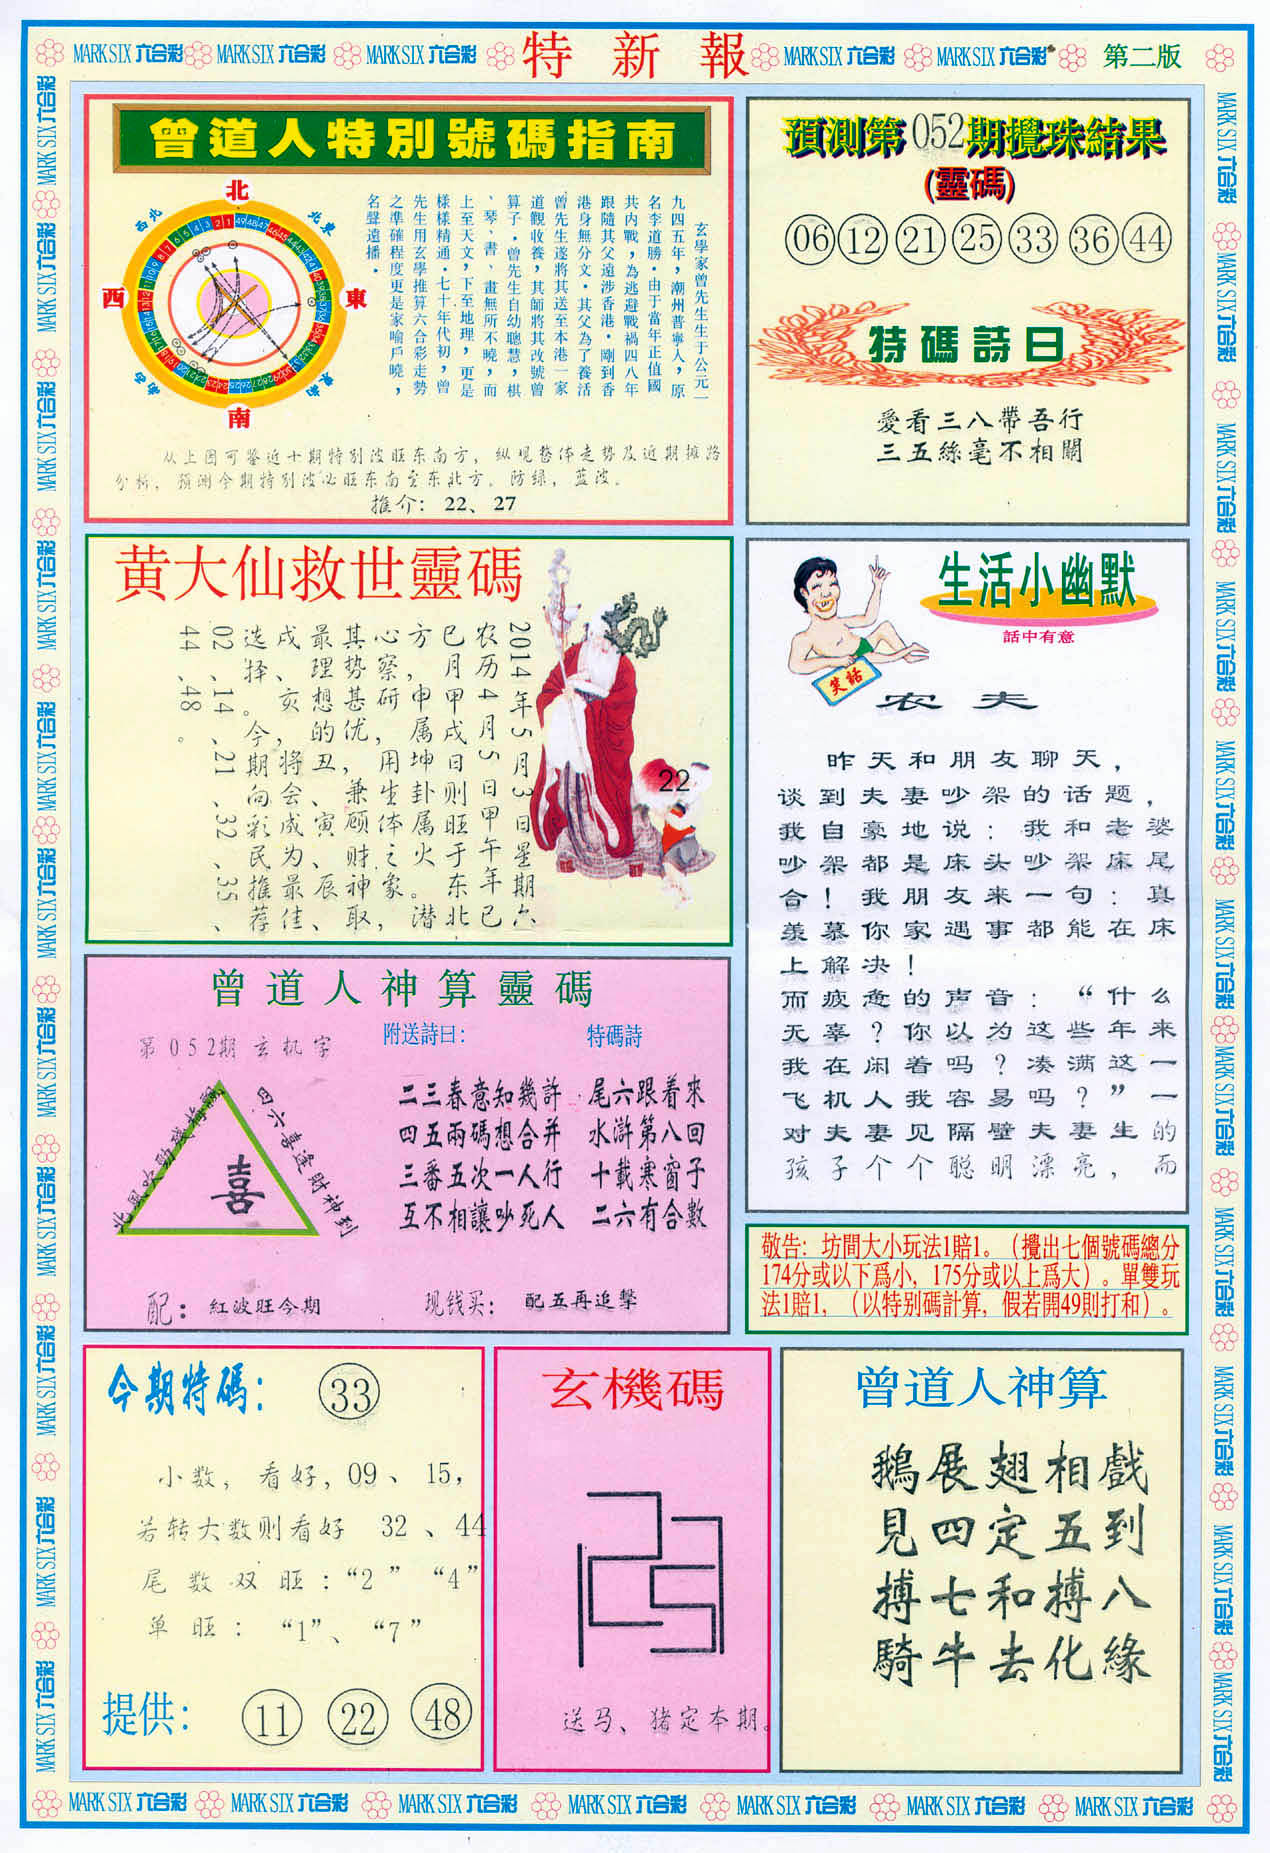 MARK SIX 六合彩 MARK SIX 六合彩 MARK SIX 六合彩 特新報 MARK SIX 六合彩 MARK SIX 六合彩 第二版
曾道人特別號碼指南
北
東
南
西
西北
北東
玄學家曾先生生于公元一
九四五年，潮州普寧人，原
名李道勝·由于當年正值國
共内戰，為逃避戰禍四八年
跟隨其父遠涉香港·剛到香
港身無分文·其父為了養活
曾先生遂將其送至本港一家
道觀收養，其師將其改號曾
算子·曾先生自幼聰慧，棋
、琴、書、畫無所不曉，而
上至天文，下至地理，更是
樣樣精通·七十年代初，曾
先生用玄學推算六合彩走勢
之準確程度更是家喻戶曉，
名聲遠播·
从上图可鉴近十期特别波旺东南方，纵观整体走势及近期摊路
分析，预测今期特别波必旺东南至东北方。防绿，蓝波。
推介：22、27
預測第052期攪珠結果
(靈碼)
06 12 21 25 33 36 44
特碼詩曰
愛看三八帶吾行
三五絲毫不相關
黄大仙救世靈碼
2014年5月3日星期六
农历4月5日甲午年己
巳月甲戌日则旺于东北
方，申属坤卦属火。潜
心察研，用生体之象。
其势甚优，兼顾财神取，
最理想的丑、寅、辰、
戌、亥，将会成为最佳
选择。今期向彩民推荐
02、14、21、32、35、
44、48。
22
生活小幽默
話中有意
笑話
农夫
昨天和朋友聊天，
谈到夫妻吵架的话题，
我自豪地说：我和老婆
吵架都是床头吵架床尾
合！我朋友来一句：真
羡慕你家遇事都能在床
上解决！
而疲惫的声音：“什么
无辜？你以为这些年来
我在闲着吗？凑满这一
飞机人我容易吗？”一
对夫妻见隔壁夫妻生的
孩子个个聪明漂亮，而
曾道人神算靈碼
第052期 玄机字
附送詩曰：
特碼詩
北風吹動殘梅飄
四六喜逢財神到
喜
二三春意知幾許
四五兩碼想合并
三番五次一人行
互不相讓吵死人
尾六跟着來
水滸第八回
十載寒窗子
二六有合數
配：紅波旺今期
现钱买：配五再追擊
敬告：坊間大小玩法1賠1。（攪出七個號碼總分
174分或以下爲小，175分或以上爲大）。單雙玩
法1賠1，（以特别碼計算，假若開49則打和）。
今期特碼：33
小数，看好，09、15，
若转大数则看好 32、44
尾数双旺：“2”“4”
单旺：“1”、“7”
提供：11 22 48
玄機碼
送马、猪定本期。
曾道人神算
鵝展翅相戲
見四定五到
搏七和搏八
騎牛去化緣
MARK SIX 六合彩 MARK SIX 六合彩 MARK SIX 六合彩 MARK SIX 六合彩 MARK SIX 六合彩 MARK SIX 六合彩 MARK SIX 六合彩